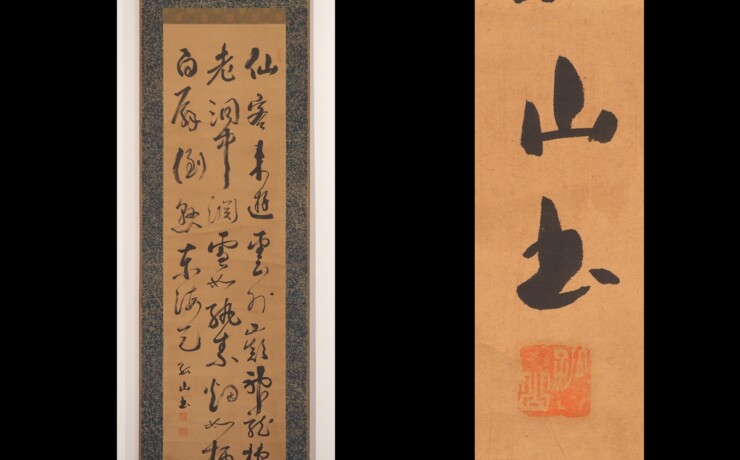 仙客来遊雲外巓神龍栖
老洞中淵雪如紈素烟如柄
白扇倒懸東海天
山書
山書